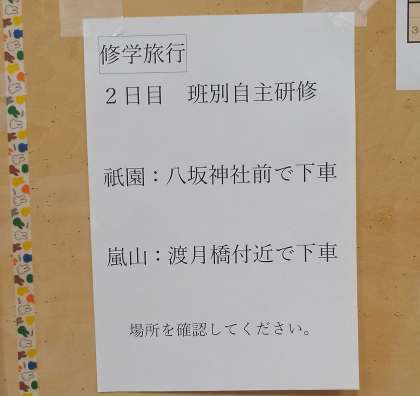 修学旅行
２日目　班別自主研修
祇園：八坂神社前で下車
嵐山：渡月橋付近で下車
場所を確認してください。
3